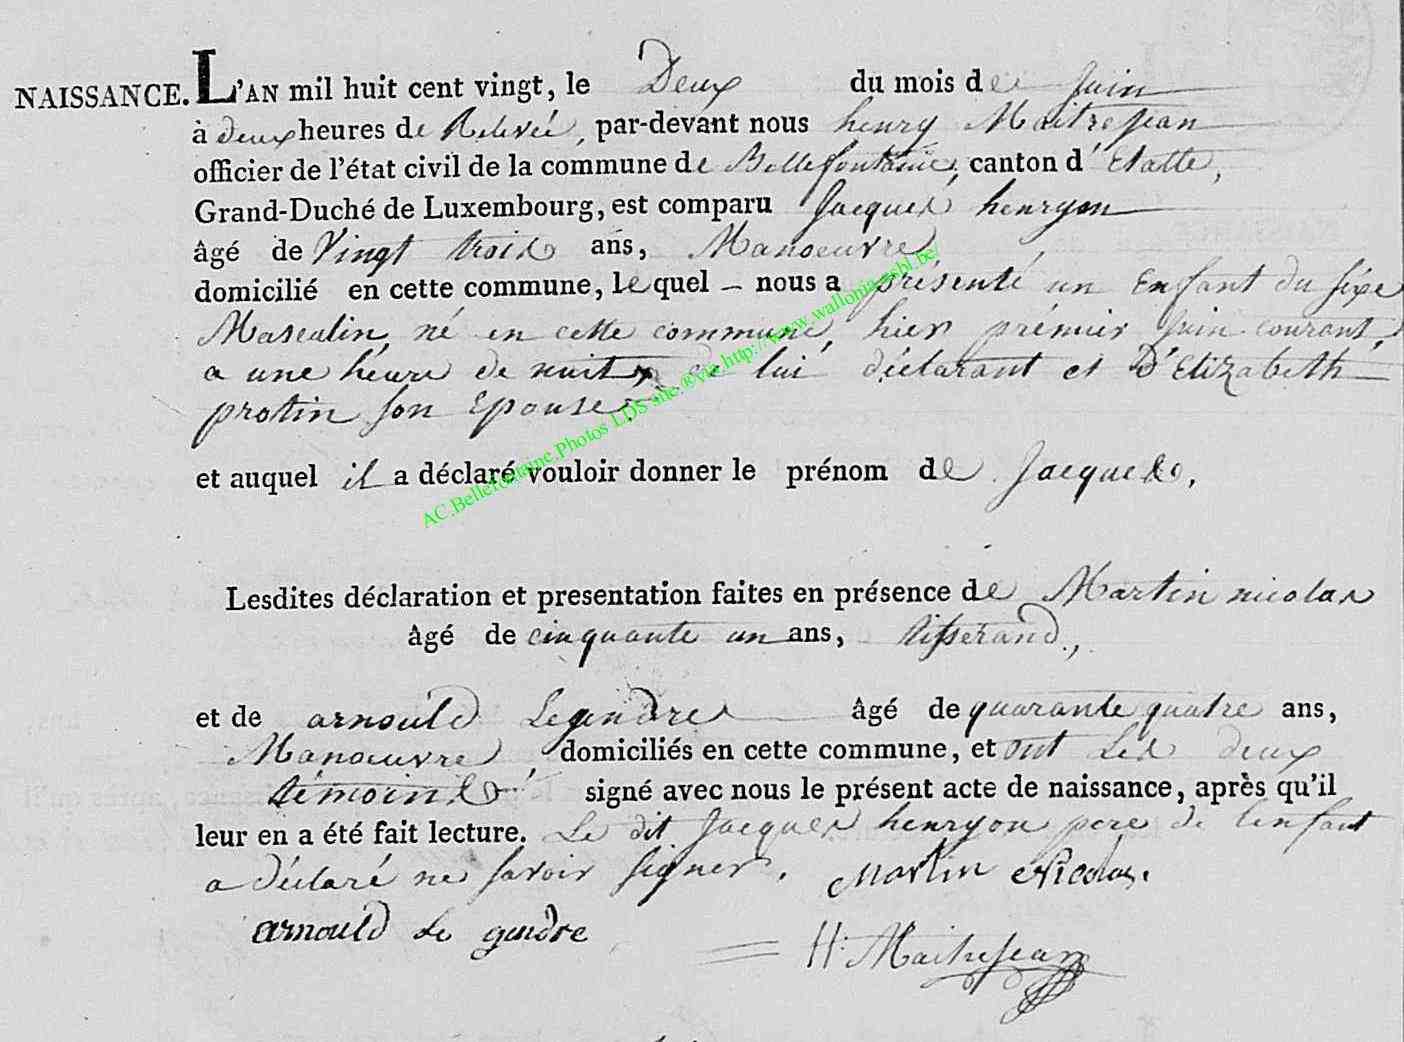 NAISSANCE. L'AN mil huit cent vingt, le Deux du mois de Juin
à deux heures de Relevée, par-devant nous henry Maitrejean
officier de l'état civil de la commune de Bellefontaine, canton d'Etalle,
Grand-Duché de Luxembourg, est comparu Jacques henryon
âgé de Vingt trois ans, Manoeuvre
domicilié en cette commune, lequel – nous a présenté un Enfant du sexe
Masculin né en cette commune, hier prémier Juin courant,
a une heure de nuit de lui déclarant et D'Elizabeth
protin son Epouse.
et auquel il a déclaré vouloir donner le prénom de Jacques.
AC.Bellefontaine.Photos LDS site.®via http://www.wallonia-asbl.be/
Lesdites déclaration et presentation faites en présence de Martin nicolas
âgé de cinquante un ans, tisserand,
et de arnould Legendre âgé de quarante quatre ans,
Manoeuvre, domiciliés en cette commune, et ont Les deux
témoins signé avec nous le présent acte de naissance, après qu'il
leur en a été fait lecture. Le dit Jacques henryon pere de l'enfant
a déclaré ne savoir signer. Martin Nicolas.
arnould Le gendre
H. Maitrejean